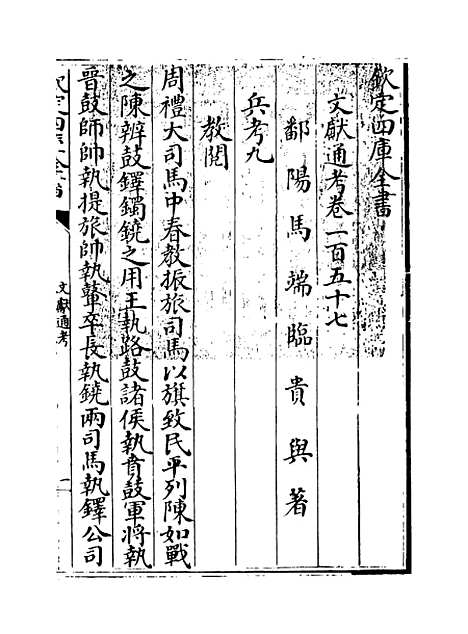 欽定四庫全書
文獻通考卷一百五十七
鄱陽馬端臨貴與著
兵考九
教閲
周禮大司馬中春教振旅司馬以旗致民平列陳如戰
之陳辨鼓鐸鐲鐃之用王執路鼓諸侯執賁鼓軍將執
晉鼓師帥執提旅帥執鼙卒長執鐃兩司馬執鐸公司
欽定四庫全書
文獻通考
一